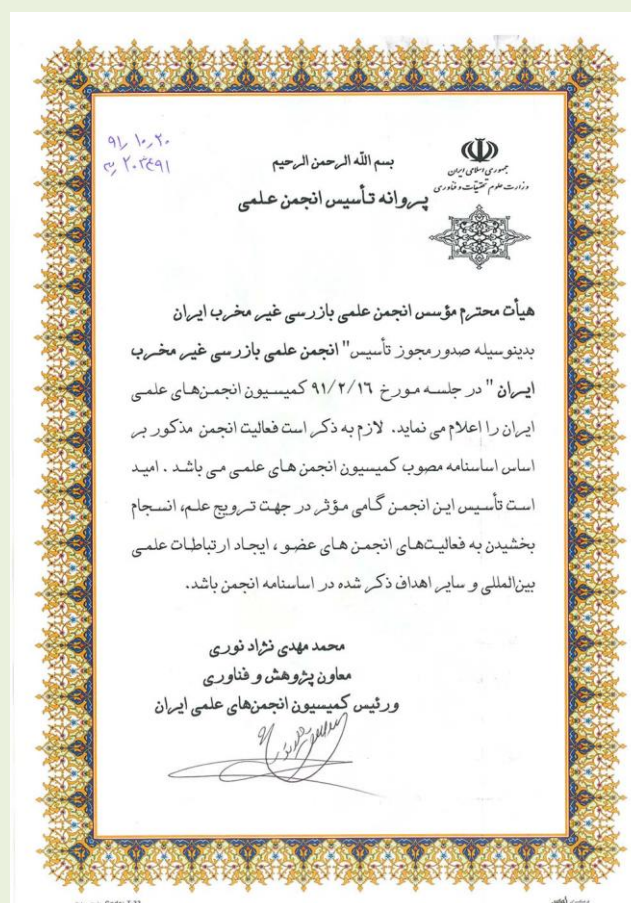 ۹۱٫۱۰٫۲۰
بسم الله الرحمن الرحیم
جمهوری اسلامی ایران
وزارت علوم تحقیقات و فناوری
پروانه تأسیس انجمن علمی
هیأت محترم مؤسس انجمن علمی بازرسی غیر مخرب ایران
بدینوسیله صدور مجوز تأسیس" انجمن علمی بازرسی غیر مخرب
ایران " در جلسه مورخ ۹۱/۲/۱۶ کمیسیون انجمن‌های علمی
ایران را اعلام می نماید. لازم به ذکر است فعالیت انجمن مذکور بر
اساس اساسنامه مصوب کمیسیون انجمن های علمی می باشد . امید
است تأسیس این انجمن گامی مؤثر در جهت ترویج علم، انسجام
بخشیدن به فعالیت‌های انجمن های عضو ، ایجاد ارتباطات علمی
بین‌المللی و سایر اهداف ذکر شده در اساسنامه انجمن باشد.
محمد مهدی نژاد نوری
معاون پژوهش و فناوری
ورئیس کمیسیون انجمن‌های علمی ایران